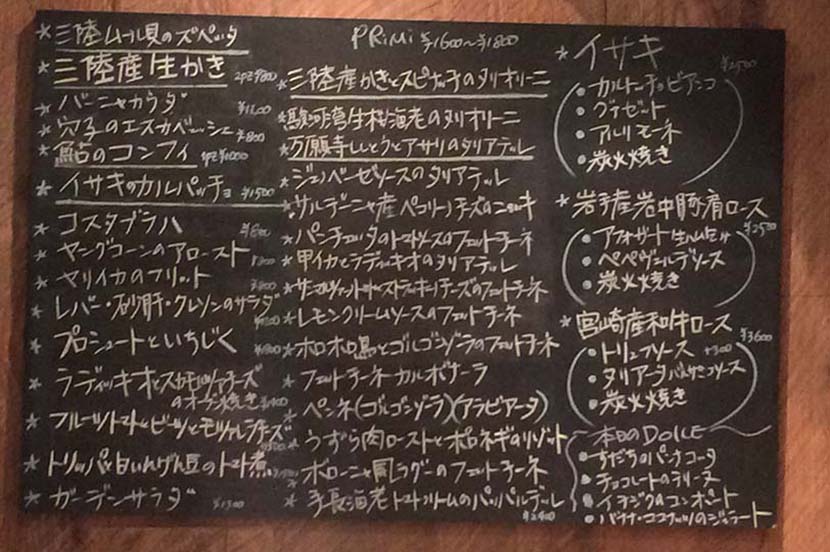 * 三陸ムール貝のズペッタ
* 三陸産生かき 2PZ ¥800
* バーニャカウダ ¥1200
* 穴子のエスカベッシュ ¥800
* 鮎のコンフィ 1PZ ¥1000
* イサキのカルパッチョ ¥1500
* コスタブラバ
* ヤングコーンのアロースト
* ヤリイカのフリット
* レバー・砂肝・クレソンのサラダ
* プロシュートといちじく
* ラディッキオとスカモルツァチーズ
のオーブン焼き
* フルーツトマトとビーツとモッツァレラチーズ
* トリッパと白いんげん豆のトマト煮
* ガーデンサラダ ¥1300
PRiMi ¥1600〜¥1800
* 三陸産かきとスピナッチのタリオリーニ
* 駿河湾生桜海老のタリオリーニ
* 万願寺ししとうとアサリのタリアテッレ
* ジェノベーゼソースのタリアテッレ
* サルデーニャ産ペコリーノチーズのニョッキ
* パンチェッタのトマトソースのフェットチーネ
* 甲イカとラディッキオのタリアテッレ
* フェットチーネ
* レモンクリームソースのフェットチーネ
* ホロホロ鳥とゴルゴンゾーラのフェットチーネ
* フェットチーネ カルボナーラ
* ペンネ(ゴルゴンゾーラ)(アラビアータ)
* うずら肉ローストとポロネギのリゾット
* ボローニャ風ラグーのフェットチーネ
* 手長海老トマトクリームのパッパルデーレ
¥2400
* イサキ ¥2500
・カルトッチョビアンコ
・グァゼット
・アルリモーネ
・炭火焼き
* 岩手産岩中豚肩ロース
¥2500
・アフォガート
・ペペヴェルデソース
・炭火焼き
* 宮崎産和牛ロース
¥3600
・トリュフソース +300
・タリアータバルサミコソース
・炭火焼き
本日のDOLCE
・すだちのパンナコッタ
・チョコレートのテリーヌ
・イチジクのコンポート
・バナナ・ココナッツのジェラート